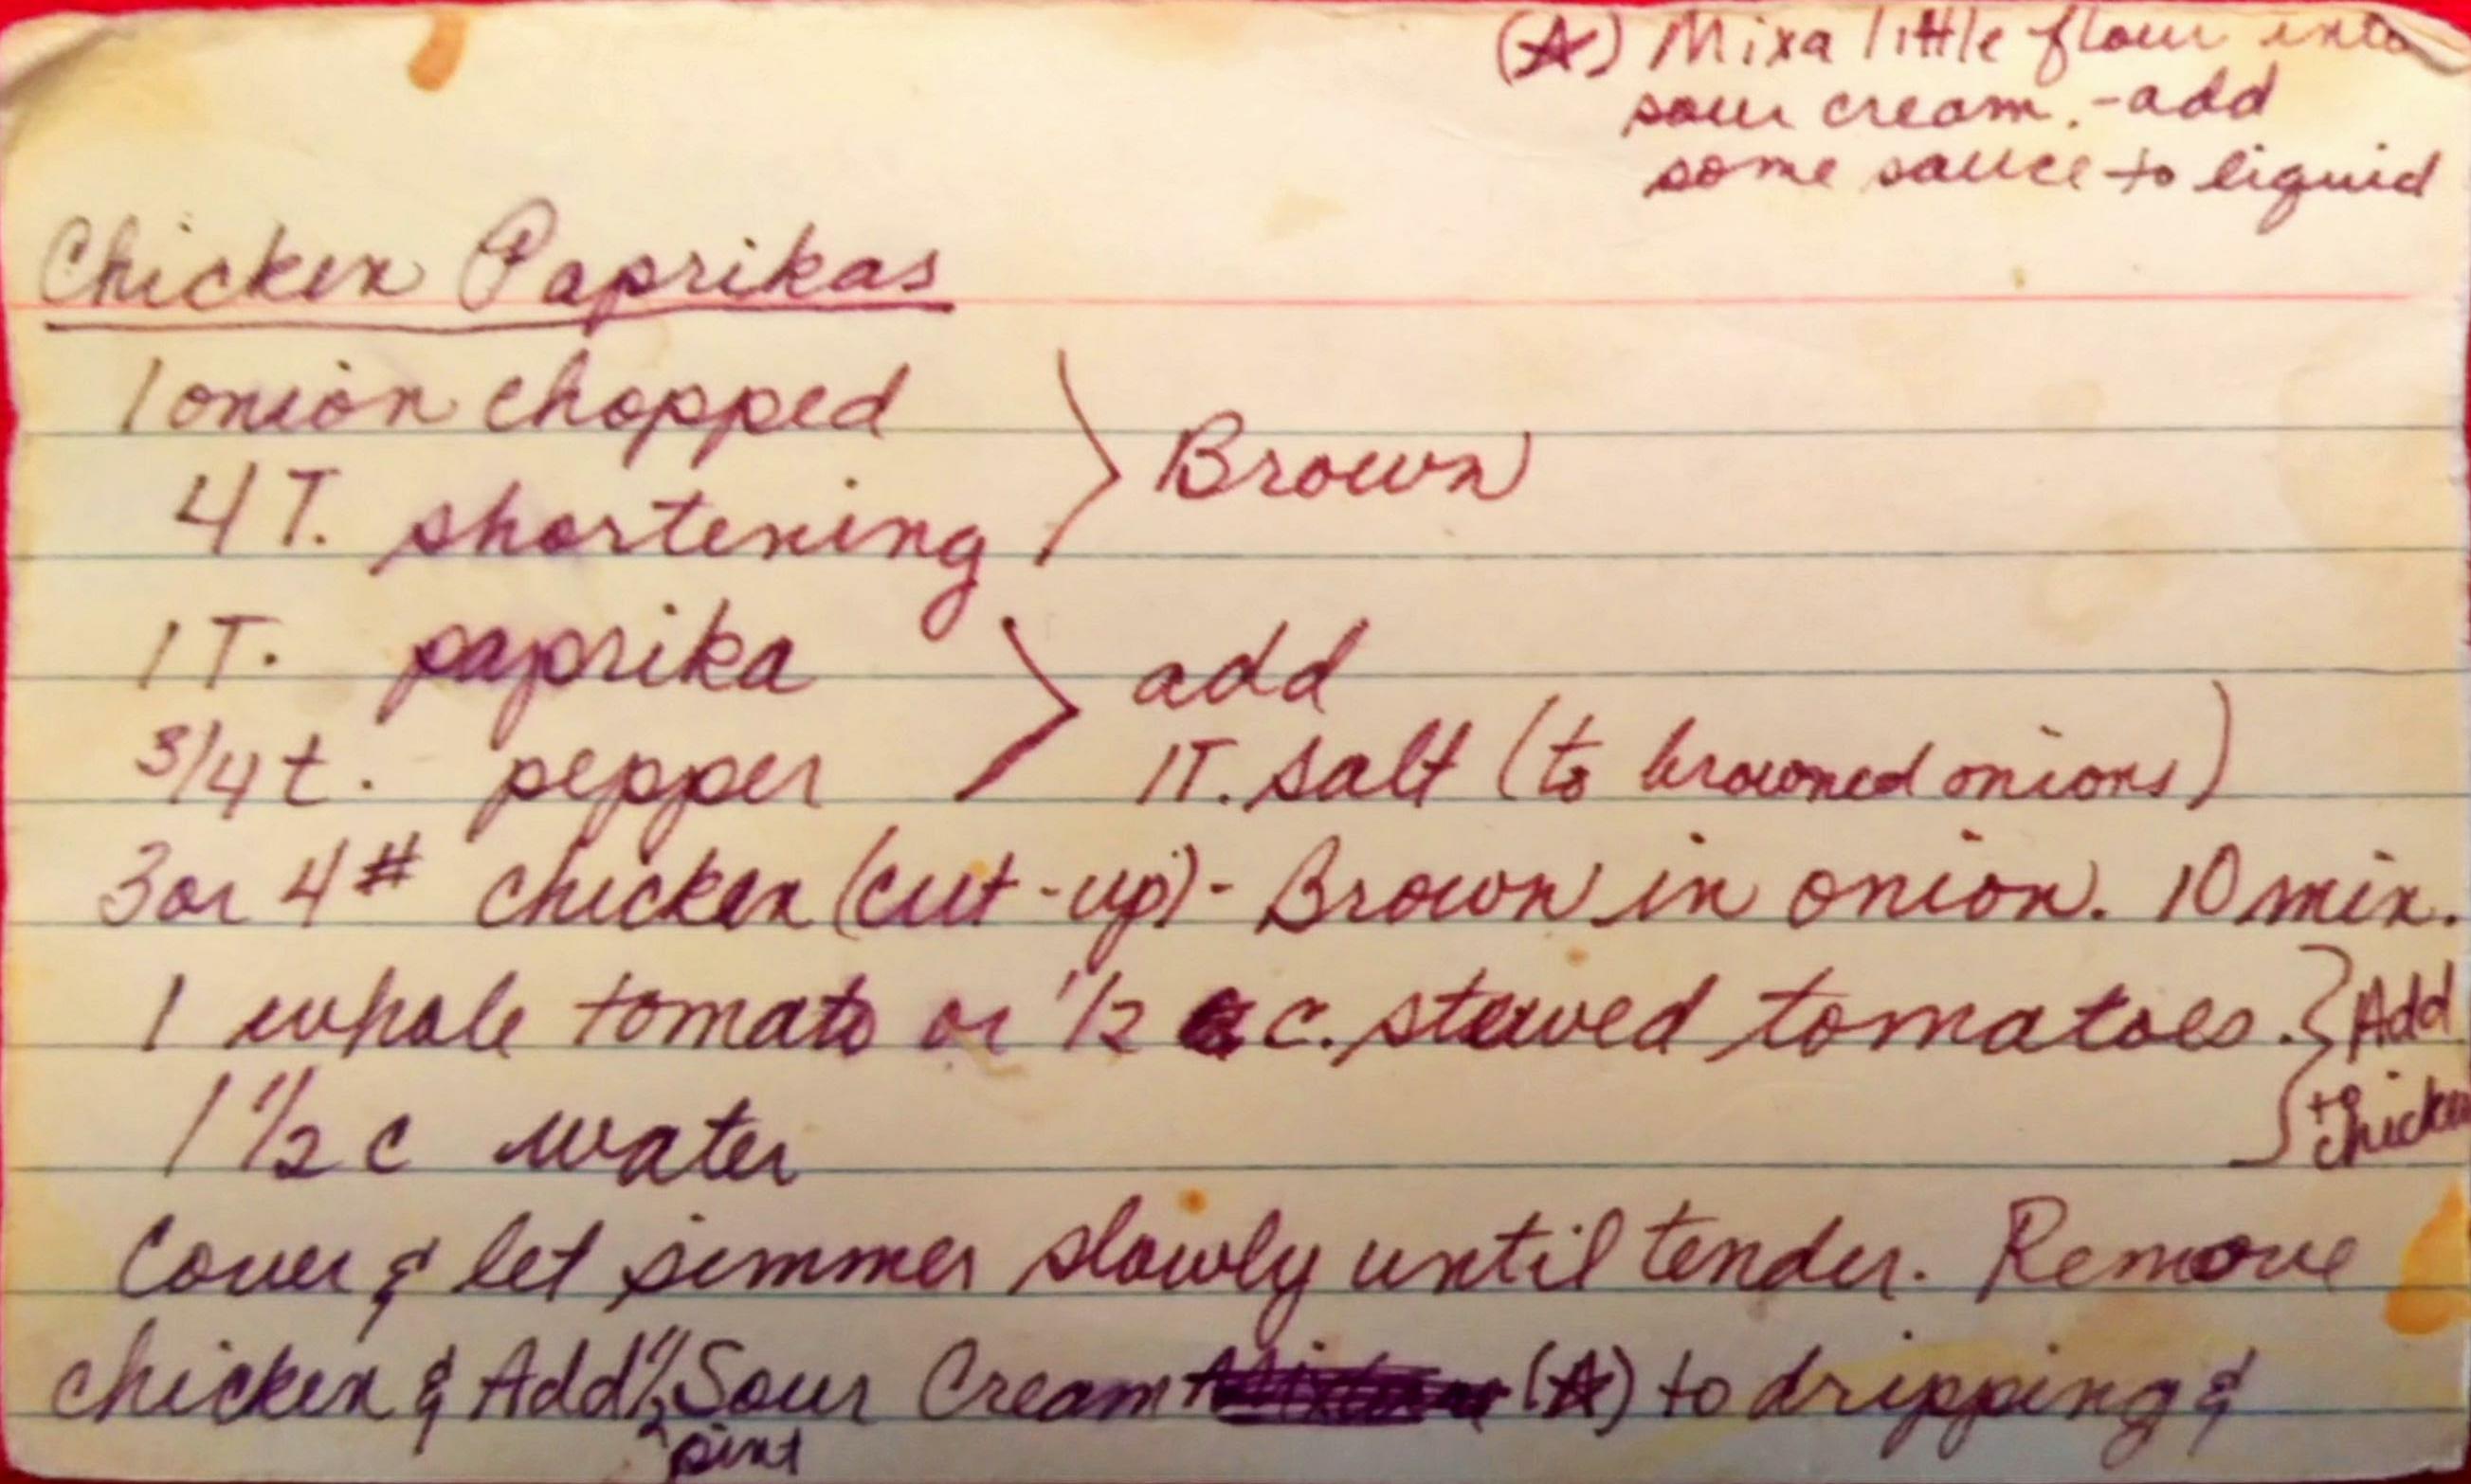 (☆) Mix a little flour into
sour cream. - add
some sauce to liquid
Chicken Paprikas
1 onion chopped
4 T. shortening
Brown
1 T. paprika
3/4 t. pepper
add
1T. salt (to browned onions)
3 or 4 # chicken (cut-up) - Brown in onion. 10 min.
1 whole tomato or 1/2 c. stewed tomatoes.
1 1/2 c water
Add
to
chicken
Cover & let simmer slowly until tender. Remove
chicken & Add 1/2 pint Sour Cream (☆) to dripping &